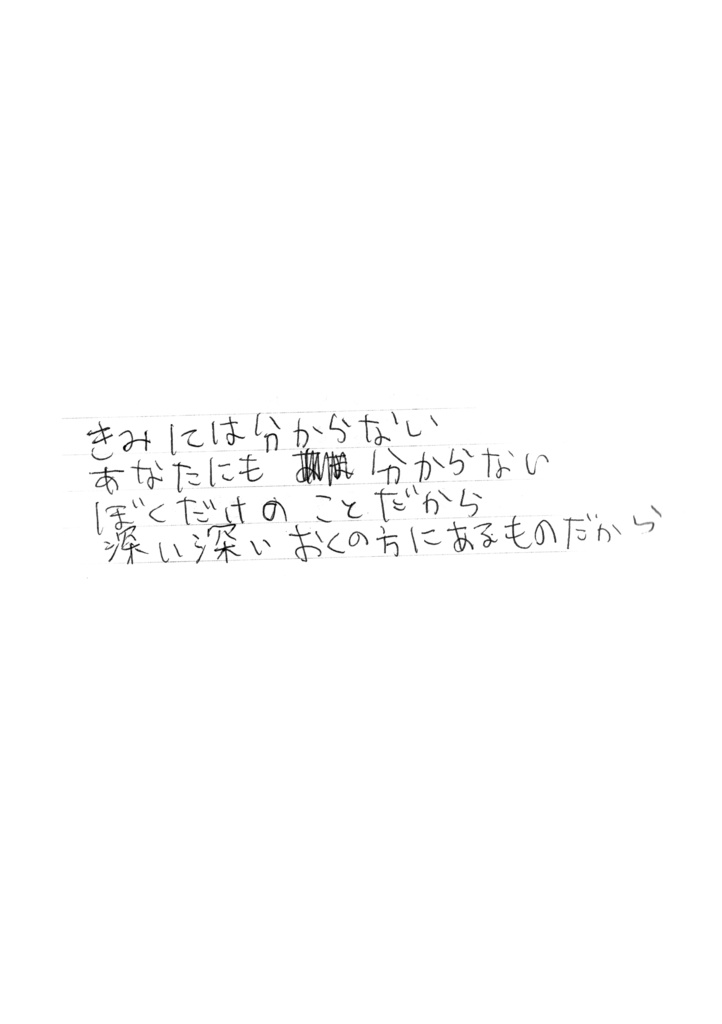 きみには分からない
あなたにも 分からない
ぼくだけの ことだから
深い深い おくの方にあるものだから